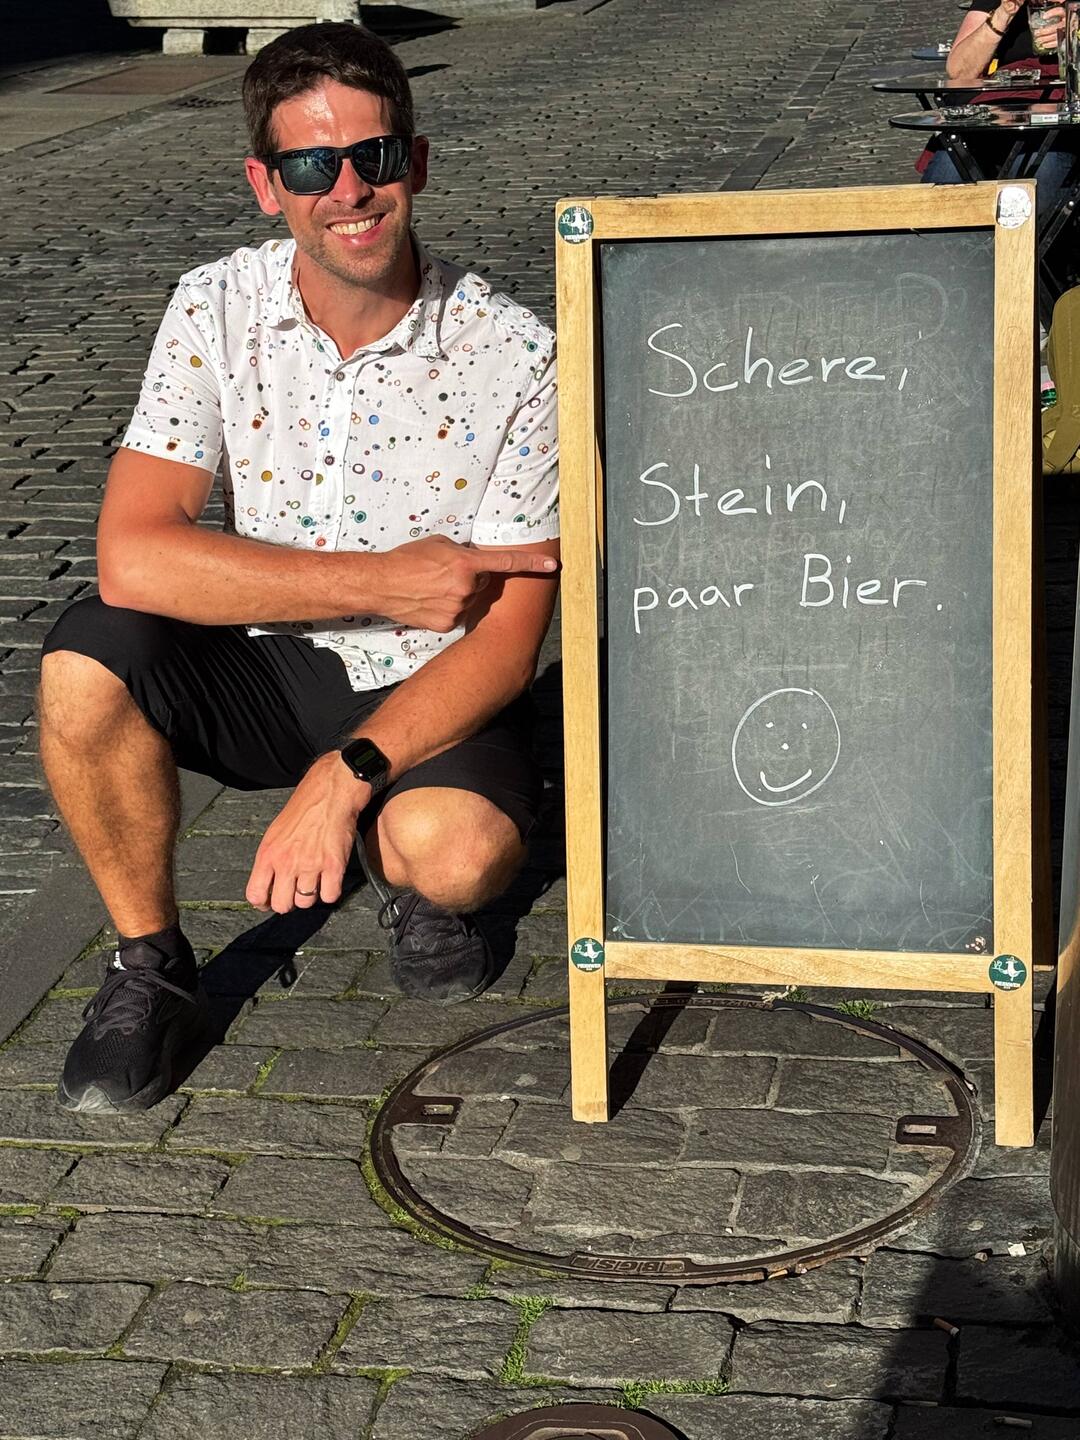 Schere,
Stein,
paar Bier.